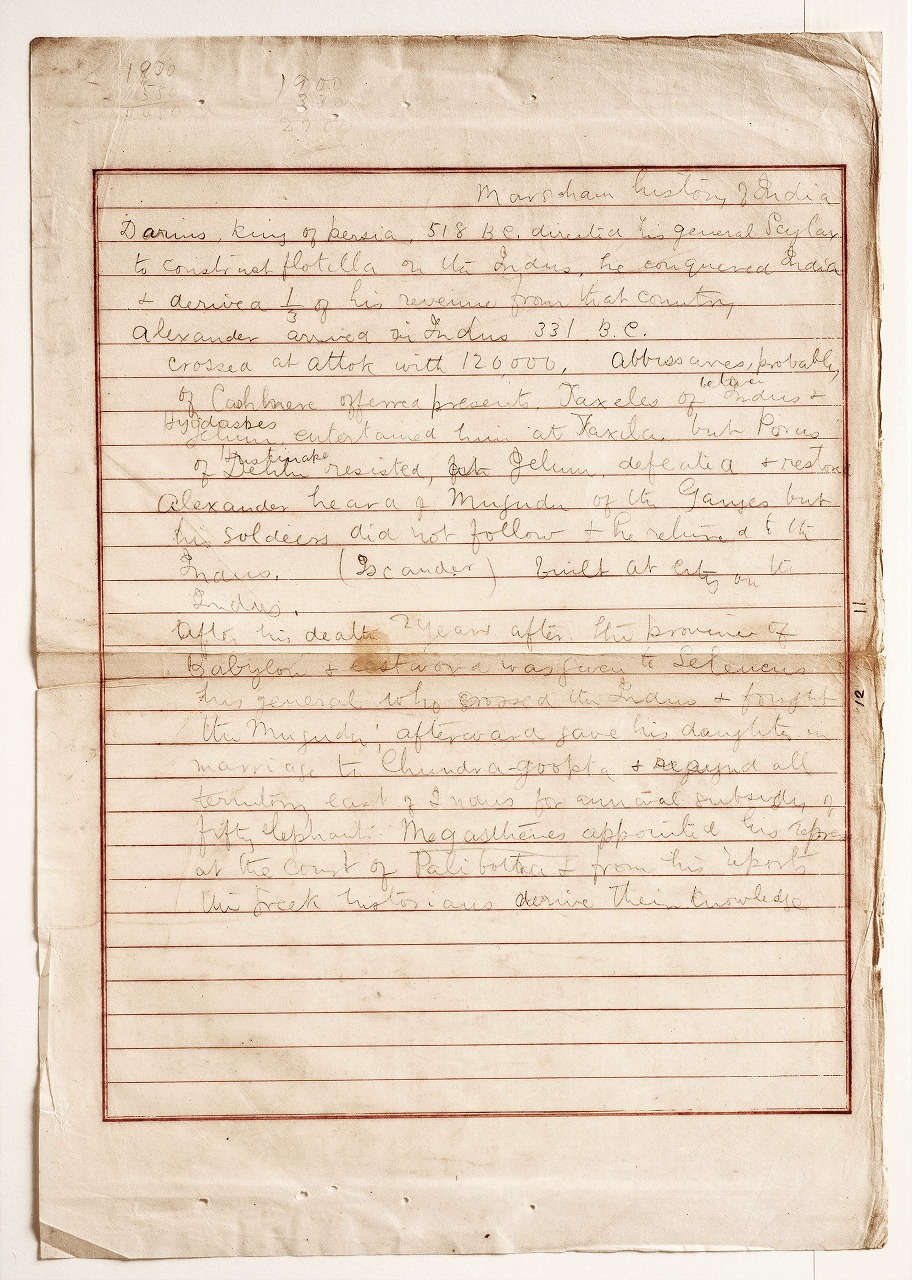 1900
1900
Marscham history of India
Darius, king of persia, 518 B.C. directed his general Scylax
to construct flotella on the Indus, he conquered India
& derived 1/3 of his revenue from that country
Alexander arrived in Indus 331 B.C.
crossed at attok with 120,000, Abbissares, probably
between
of Cashmere offerred presents, Taxeles of Indus &
Hydaspes
Jelum, entertained him at Taxila, but Porus
of resisted, Jelum, defeated & restore
Alexander heard of Mugudu of the Ganges but
his soldeers did not follow & he returned to the
Indus. (Iscander) built at city on the
Indus.
After his death 2 years after, the province of
Babylon & east world was given to Seleucus
his general who crossed the Indus & fought
the Mugudu' afterward gave his daughter in
marriage to Chundra-goopta & all
territory east of Indus for annual subsidy of
fifty elephants. Megasthenes appointed his repres
at the court of Palibothra & from his reports
the Greek historians derive their knowledge
11
12